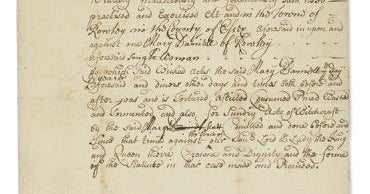 practised and Exercised At and in the Towne of
Rowley in the County of Essex aforesaid in upon and
against one Mary Daniell of Rowley
aforesaid Single Woman
by which Said Wicked Acts the said Mary Daniell
aforesaid and divers other days and times both before and
after was and is Tortured Afflicted Consumed Pined Wasted
and Tormented and also for Sundry Acts of Witchcraft
by the said Margaret Comitted and done before and
Since that time against our Sov Lord & Lady the King
and Queen there Crowne and Dignity and the forme
of the Statute in that case made and Provided.